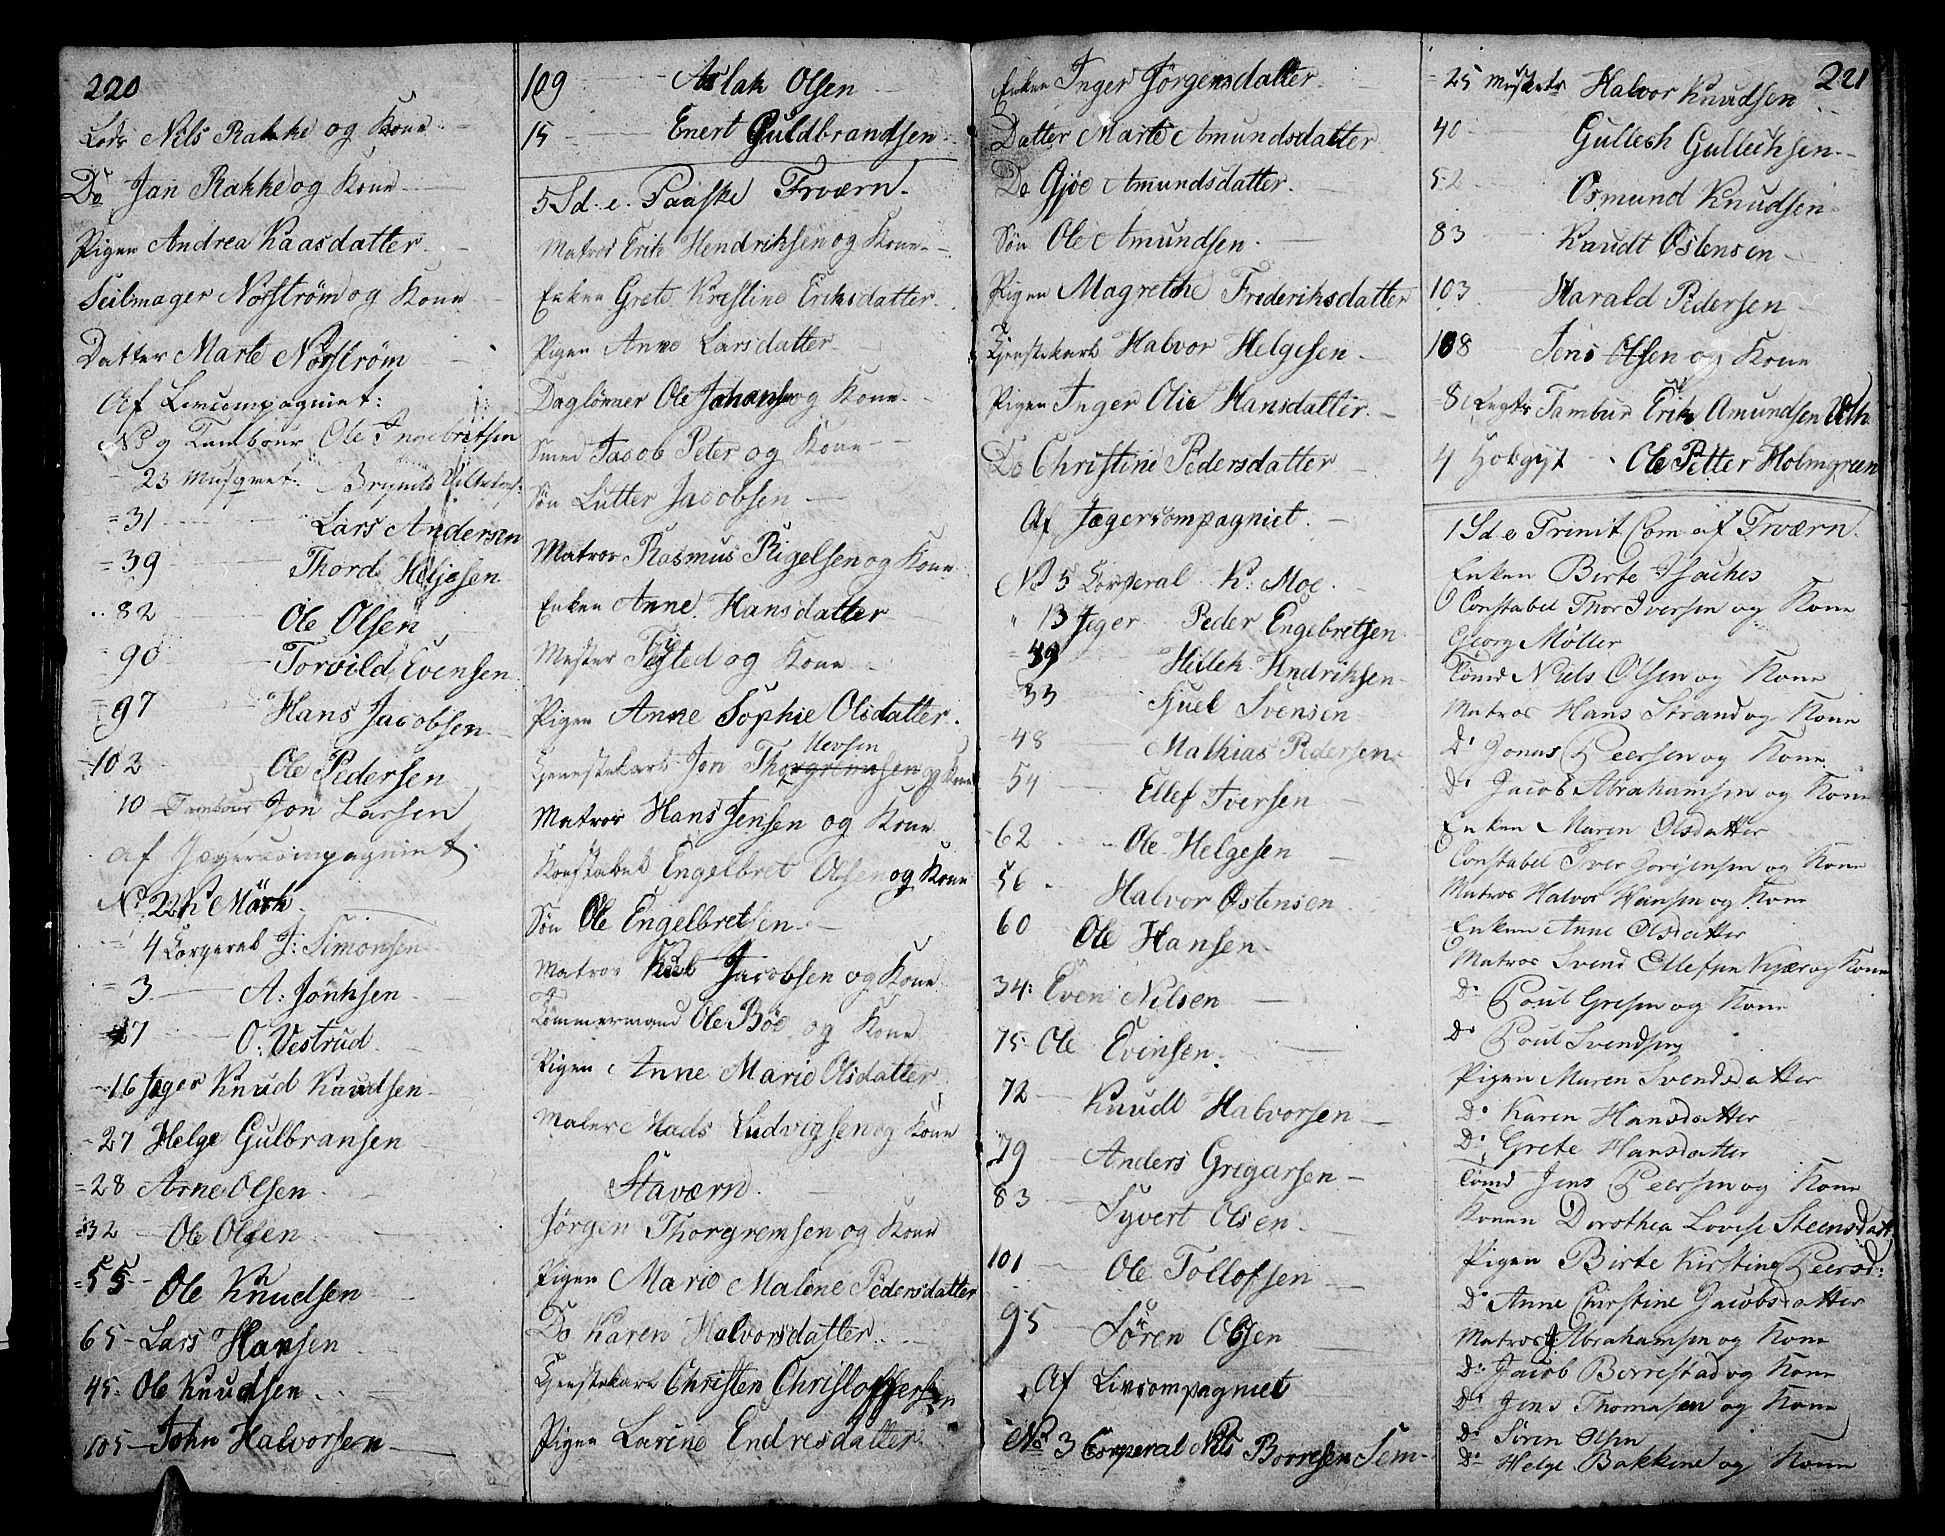 220
Lods Nils Rakke og Kone
Do Jan Rakke og Kone
Pigen Andrea Kaasdatter
Seilmager Norström og Kone
Datter Marte Norström
Af Livcompagniet:
No 9 Tambour Ole Ingebretsen
23 Musqvet:
31 Lars Andersen
39 Thord Heljesen
82 Ole Olsen
90 Torvild Evensen
97 Hans Jacobsen
102 Ole Pedersen
10 Tambour Jon Larsen
Af Jægercompagniet
No 22
4 Corperal J: Simonsen
3 A: Jonhsen
O: Vestrud
16 Jæger Knud Knudsen
27 Helge Gulbransen
28 Arne Olsen
32 Ole Olsen
55 Ole Knudsen
65 Lars Hansen
45 Ole Knudsen
105 John Halvorsen
109 Aslak Olsen
15 Enert Guldbrandsen
5 Sd. e. Paaske Frværn.
Matros Erik Hendriksen og Kone
Enken Grete Kristine Eriksdatter
Pigen Anne Larsdatter
Daglönner Ole Johansen og Kone
Smed Jacob Peter og Kone
Sön Lutter Jacobsen
Matros Rasmus Rigelsen og Kone
Enken Anne Hansdatter
Mester og Kone
Pigen Anne Sophie Olsdatter
Uevsen
Gjenstekarl Jon Thorgrimsen og Kone
Matros Hans Jensen og Kone
Konstabel Engelbret Olsen og Kone
Sön Ole Engelbretsen
Matros Jacobsen og Kone
Tömmermand Ole Böe og Kone
Pigen Anne Marie Olsdatter
Maler Mads Ludvigsen og Kone
Staværn
Jörgen Thorgremsen og Kone
Pigen Marie Malene Pedersdatter
Do Karen Halvorsdatter
Gjenstekarl Christen Christoffersen
Pigen Larine Endresdatter
Enken Inger Jörgensdatter
Datter Marte Amundsdatter
Do Gjöe Amundsdatter
Sön Ole Amundsen
Pigen Magrethe Frederiksdatter
Gjenstekarl Halvor Helgesen
Pigen Inger Olie Hansdatter
Do Christine Pedersdatter
Af Jægercompagniet
No 5 Corperal K. Moe
13 Jeger Peder Engebretsen
39 Hellek Hndriksen
33 Kjuel Svensen
48 Mathias Pedersen
54 Ellef Iversen
62 Ole Helgesen
56 Halvor Östensen
60 Ole Hansen
34: Even Nilsen
75 Ole Evinsen
72 Knudt Halvorsen
79 Anders Gregarsen
83 Syvert Olsen
101 Ole Tollofsen
95 Sören Olsen
Af Livcompagniet
No 3 Corperal Nils Borresen Sem
221
25 Muskets Halvor Knudsen
40 Gullech Gullechsen
52 Osmund Knudsen
83 Knudt Östensen
103 Harald Pedersen
108 Jens Olsen og Kone
8 Tambur Erik Amundsen
4 Ole Petter Holmgreen
1 Sd e Trinit Com af Frværn
Enken Birte Isaches
Constabel Thor Iversen og Kone
Georg Möller
Tömd Niels Olsen og Kone
Matros Hans Strand og Kone
Do Jonas Peersen og Kone
Do Jacob Abrahamsen og Kone
Enken Maren Olsdatter
Constabel Iver Jorgensen og Kone
Matros Halvor Hansen og Kone
Enken Anne Olsdatter
Matros Svend Ellefsen Kjær og Kone
Do Poul Gresen og Kone
Do Poul Svendsen
Pigen Maren Svendsdatter
Do Karen Hansdatter
Do Grete Hansdatter
Tömd Jens Peersen og Kone
Konen Dorothea Lovise Steensdatt
Pigen Birte Kirstine Peersd:
Do Anne Christine Jacobsdatter
Matros J: Abrahamsen og Kone
Do Jacob Borrestad og Kone
Do Jens Thomasen og Kone
Do Sören Olsen
Do Helge Bakkene og Kone